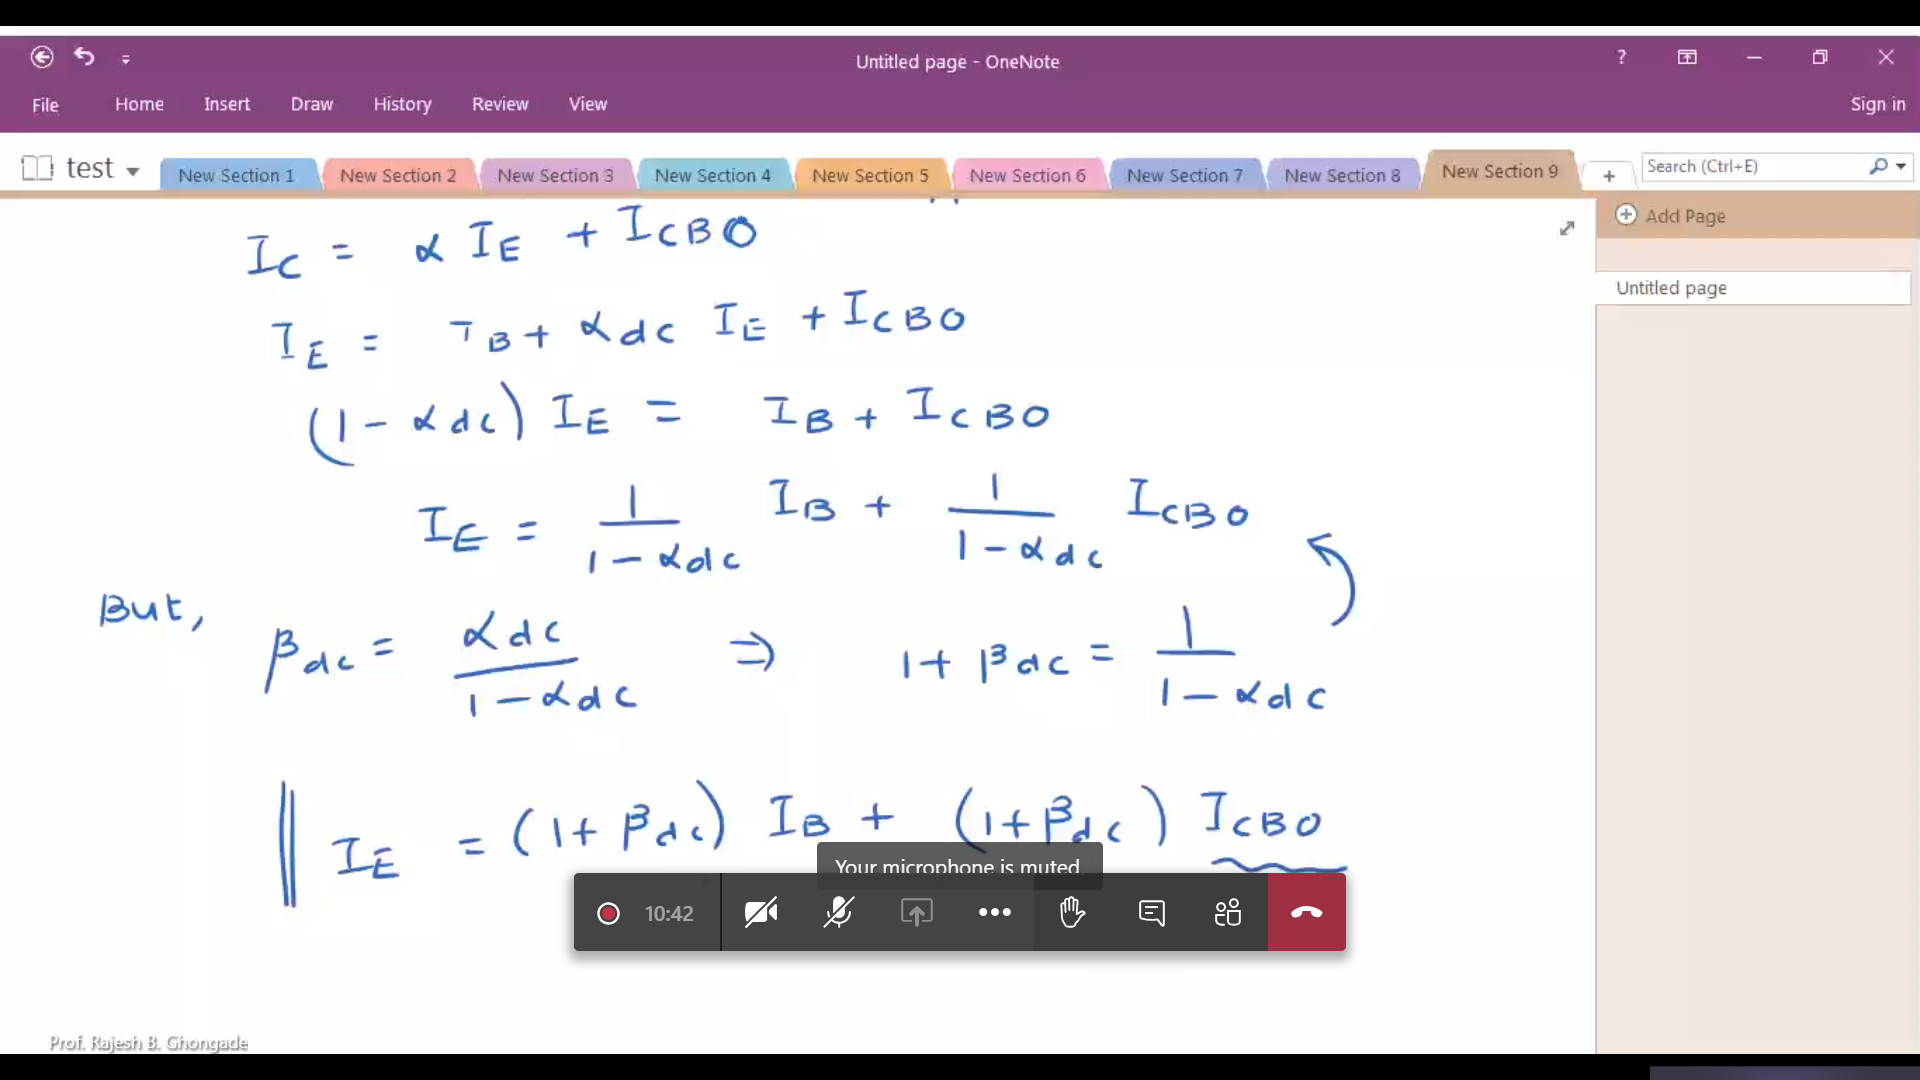 Untitled page - OneNote
?
File Home Insert Draw History Review View
Sign in
test
New Section 1 New Section 2 New Section 3 New Section 4 New Section 5 New Section 6 New Section 7 New Section 8 New Section 9 +
Search (Ctrl+E)
Add Page
Untitled page
I_C = α I_E + I_CBO
I_E = I_B + α_dc I_E + I_CBO
(1 - α_dc) I_E = I_B + I_CBO
I_E = 1/(1 - α_dc) I_B + 1/(1 - α_dc) I_CBO
But,
β_dc = α_dc/(1 - α_dc) ⇒ 1 + β_dc = 1/(1 - α_dc)
I_E = (1 + β_dc) I_B + (1 + β_dc) I_CBO
Your microphone is muted.
10:42
Prof. Rajesh B. Ghongade